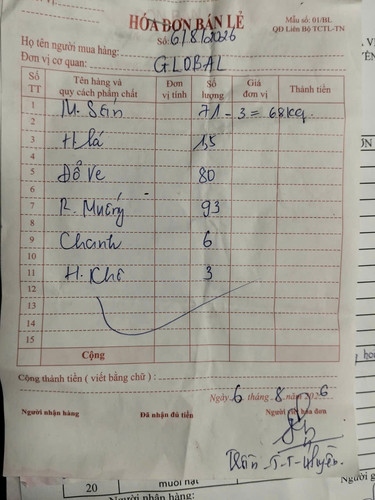 HÓA ĐƠN BÁN LẺ
Mẫu số: 01/BL
QĐ Liên Bộ TCTL-TN
Số: 6/8/2026
Họ tên người mua hàng:
Đơn vị cơ quan: GLOBAL
Số TT Tên hàng và quy cách phẩm chất Đơn vị tính Số lượng Giá đơn vị Thành tiền
1 M. Sen 71 - 3 = 68kg.
2
3 H lá 15
4
5 Đỗ Ve 80
6
7 R. Muống 93
8
9 Chanh 6
10
11 H. Khô 3
12
13
14
15
Cộng
Cộng thành tiền ( viết bằng chữ ) :
Ngày 6 tháng 8 năm 2026
Người nhận hàng Đã nhận đủ tiền Người viết hóa đơn
T-T-Huyền.
20 muối hạt
Người nhận hàng: